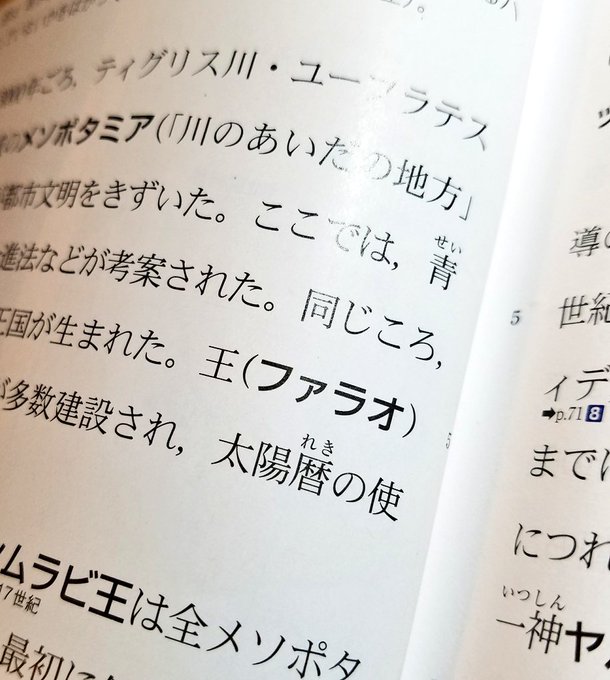 ごろ，ティグリス川・ユーフラテス
のメソポタミア(「川のあいだの地方」
都市文明をきずいた。ここでは，青
せい
進法などが考案された。同じころ，
王国が生まれた。王(ファラオ)
が多数建設され，太陽暦の使
れき
ムラビ王は全メソポタ
17世紀
最初に
導の
5 世紀
ィデ
➡p.71 8
まで
につれ
いつしん
一神ヤ